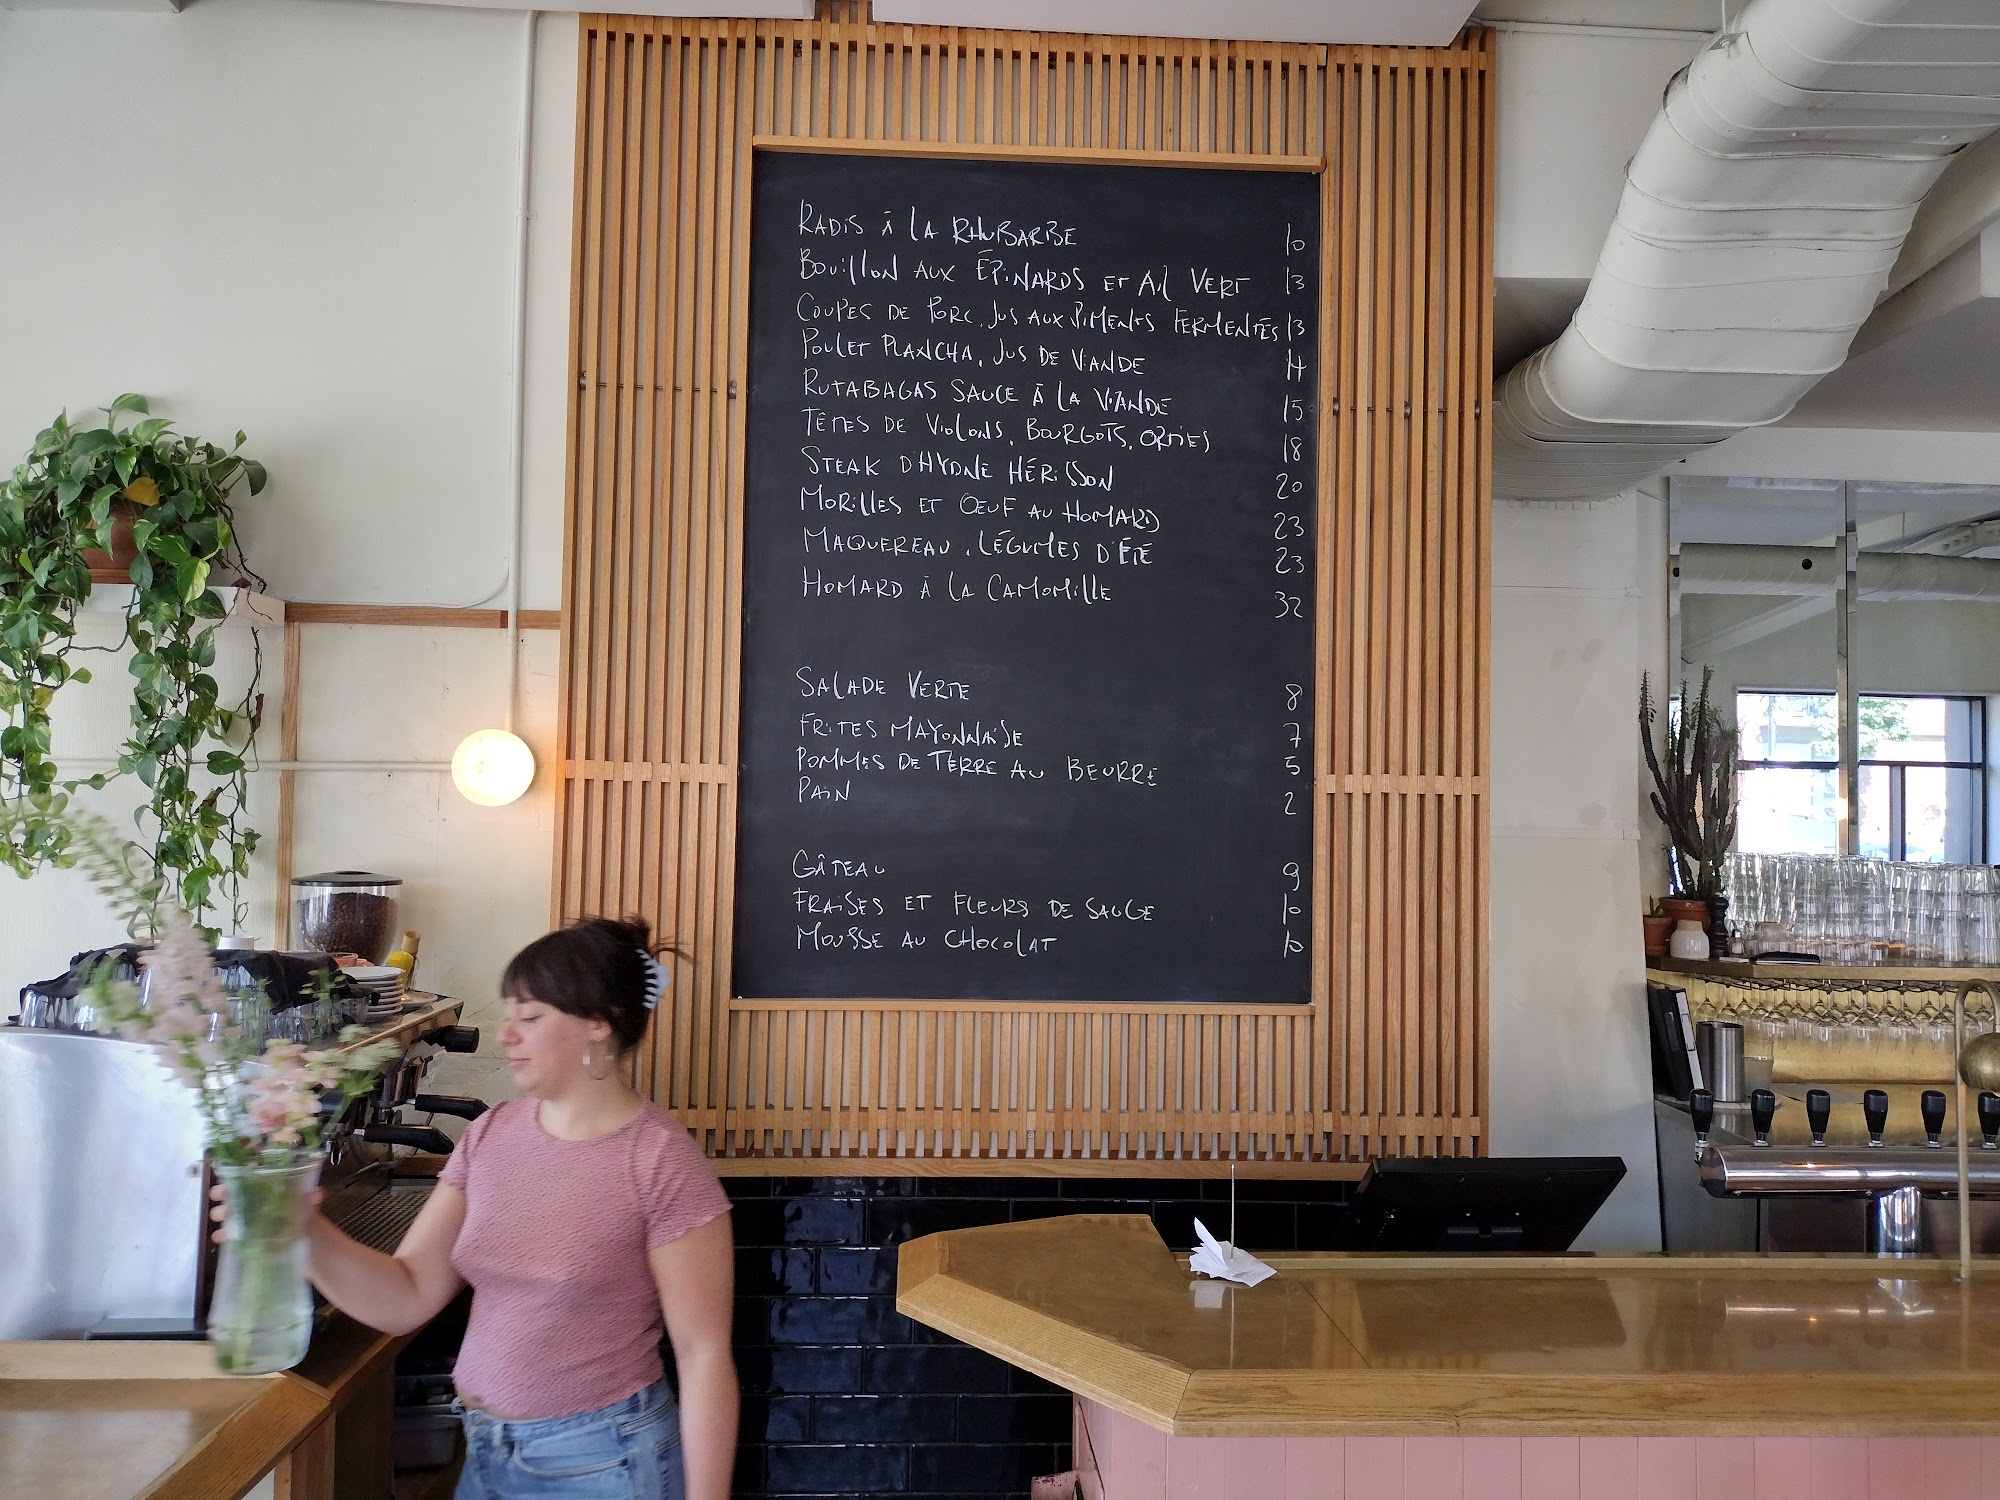 RADIS À LA RHUBARBE 10
BOUILLON AUX ÉPINARDS ET AIL VERT 13
COUPES DE PORC, JUS AUX PIMENTS FERMENTÉS 13
POULET PLANCHA, JUS DE VIANDE 14
RUTABAGAS SAUCE À LA VIANDE 15
TÊTES DE VIOLONS, BOURGOTS, ORTIES 18
STEAK D'HYDNE HÉRISSON 20
MORILLES ET ŒUF AU HOMARD 23
MAQUEREAU, LÉGUMES D'ÉTÉ 23
HOMARD À LA CAMOMILLE 32
SALADE VERTE 8
FRITES MAYONNAISE 7
POMMES DE TERRE AU BEURRE 5
PAIN 2
GÂTEAU 9
FRAISES ET FLEURS DE SAUGE 10
MOUSSE AU CHOCOLAT 10